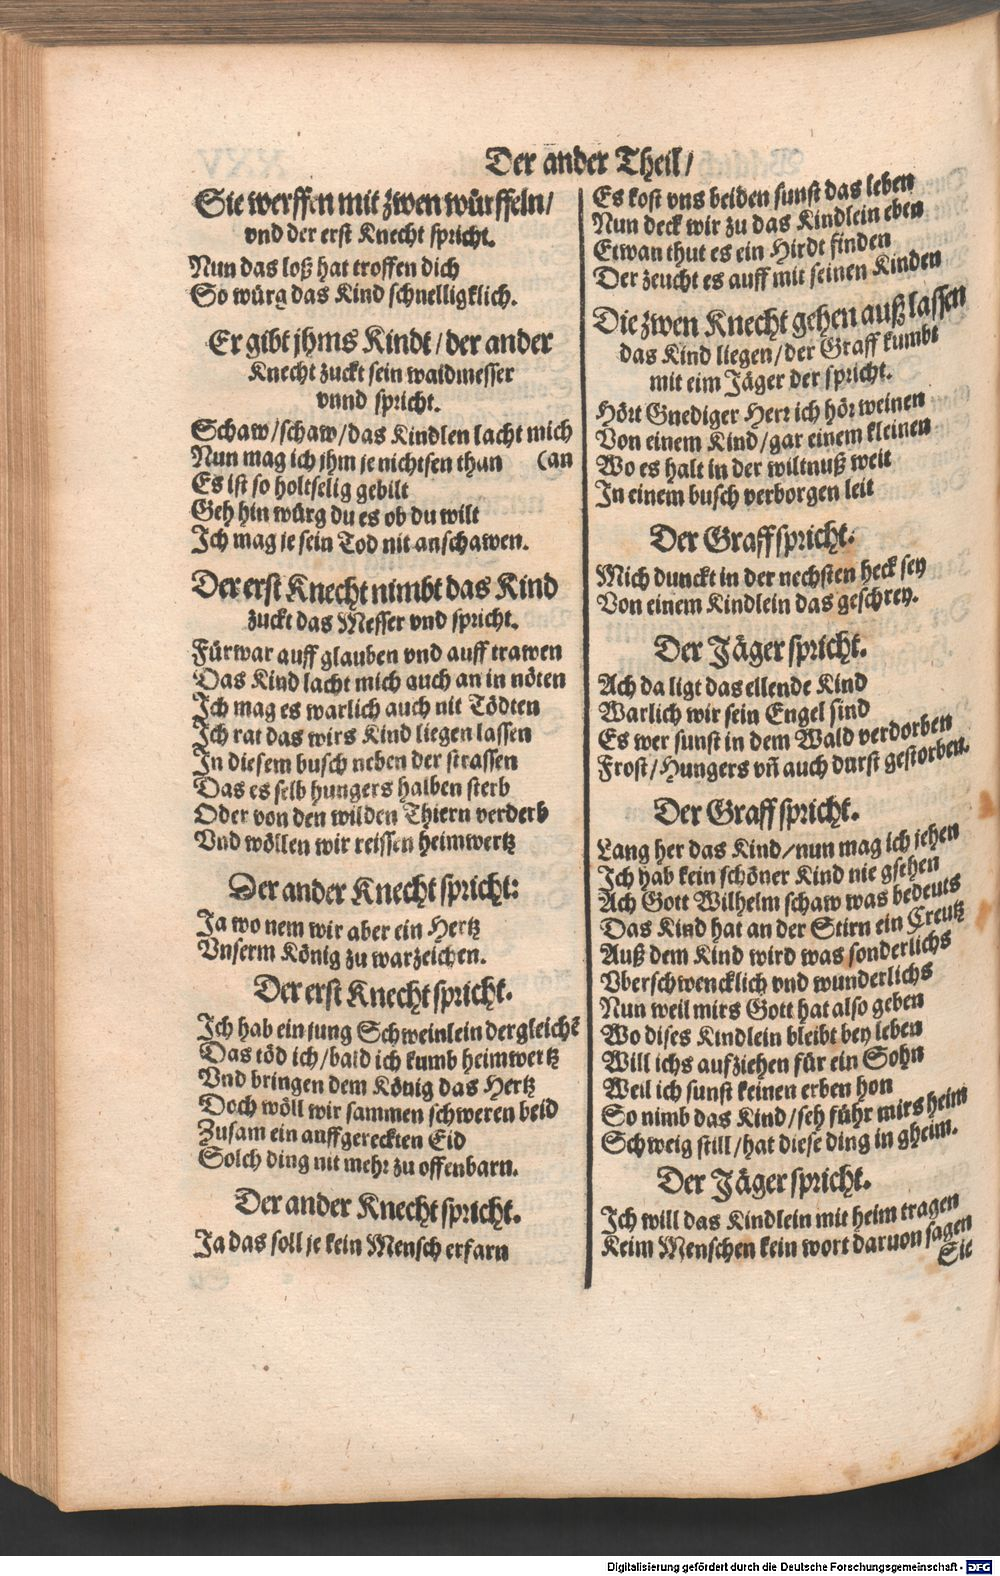 Der ander Theil/
Sie werffen mit zwen würffeln/
vnd der erst Knecht spricht.
Nun das loß hat troffen dich
So würg das Kind schnelligklich.
Er gibt jhms Kindt/der ander
Knecht zuckt sein waidmesser
vnnd spricht.
Schaw/schaw/das Kindlen lacht mich
Nun mag ich jhm je nichtsen thun (an
Es ist so holtselig gebilt
Geh hin würg du es ob du wilt
Ich mag je sein Tod nit anschawen.
Der erst Knecht nimbt das Kind
zuckt das Messer vnd spricht.
Fürwar auff glauben vnd auff trawen
Das Kind lacht mich auch an in nöten
Ich mag es warlich auch nit Tödten
Ich rat das wirs Kind liegen lassen
In diesem busch neben der strassen
Das es selb hungers halben sterb
Oder von den wilden Thiern verderb
Vnd wöllen wir reissen heimwertz
Der ander Knecht spricht:
Ja wo nem wir aber ein Hertz
Vnserm König zu warzeichen.
Der erst Knecht spricht.
Ich hab ein jung Schweinlein dergleichẽ
Das töd ich/bald ich kumb heimwertz
Vnd bringen dem König das Hertz
Doch wöll wir sammen schweren beid
Zusam ein auffgereckten Eid
Solch ding nit mehr zu offenbarn.
Der ander Knecht spricht.
Ja das soll je kein Mensch erfarn
Es kost vns beiden sunst das leben
Nun deck wir zu das Kindlein eben
Etwan thut es ein Hirdt finden
Der zeucht es auff mit seinen Kinden
Die zwen Knecht gehen auß lassen
das Kind liegen/der Graff kumbt
mit eim Jäger der spricht.
Hört Gnediger Herr ich hör weinen
Von einem Kind/gar einem kleinen
Wo es halt in der wiltnuß weit
In einem busch verborgen leit
Der Graff spricht.
Mich dunckt in der nechsten heck sey
Von einem Kindlein das geschrey.
Der Jäger spricht.
Ach da ligt das ellende Kind
Warlich wir sein Engel sind
Es wer sunst in dem Wald verdorben
Frost/Hungers vñ auch durst gestorben.
Der Graff spricht.
Lang her das Kind/nun mag ich jehen
Ich hab kein schöner Kind nie gsehen
Ach Gott Wilhelm schaw was bedeuts
Das Kind hat an der Stirn ein Creutz
Auß dem Kind wird was sonderlichs
Vberschwencklich vnd wunderlichs
Nun weil mirs Gott hat also geben
Wo dises Kindlein bleibt bey leben
Will ichs aufziehen für ein Sohn
Weil ich sunst keinen erben hon
So nimb das Kind/seh führ mirs heim
Schweig still/hat diese ding in gheim.
Der Jäger spricht.
Ich will das Kindlein mit heim tragen
Keim Menschen kein wort daruon sagen
Sie
Digitalisierung gefördert durch die Deutsche Forschungsgemeinschaft - DFG